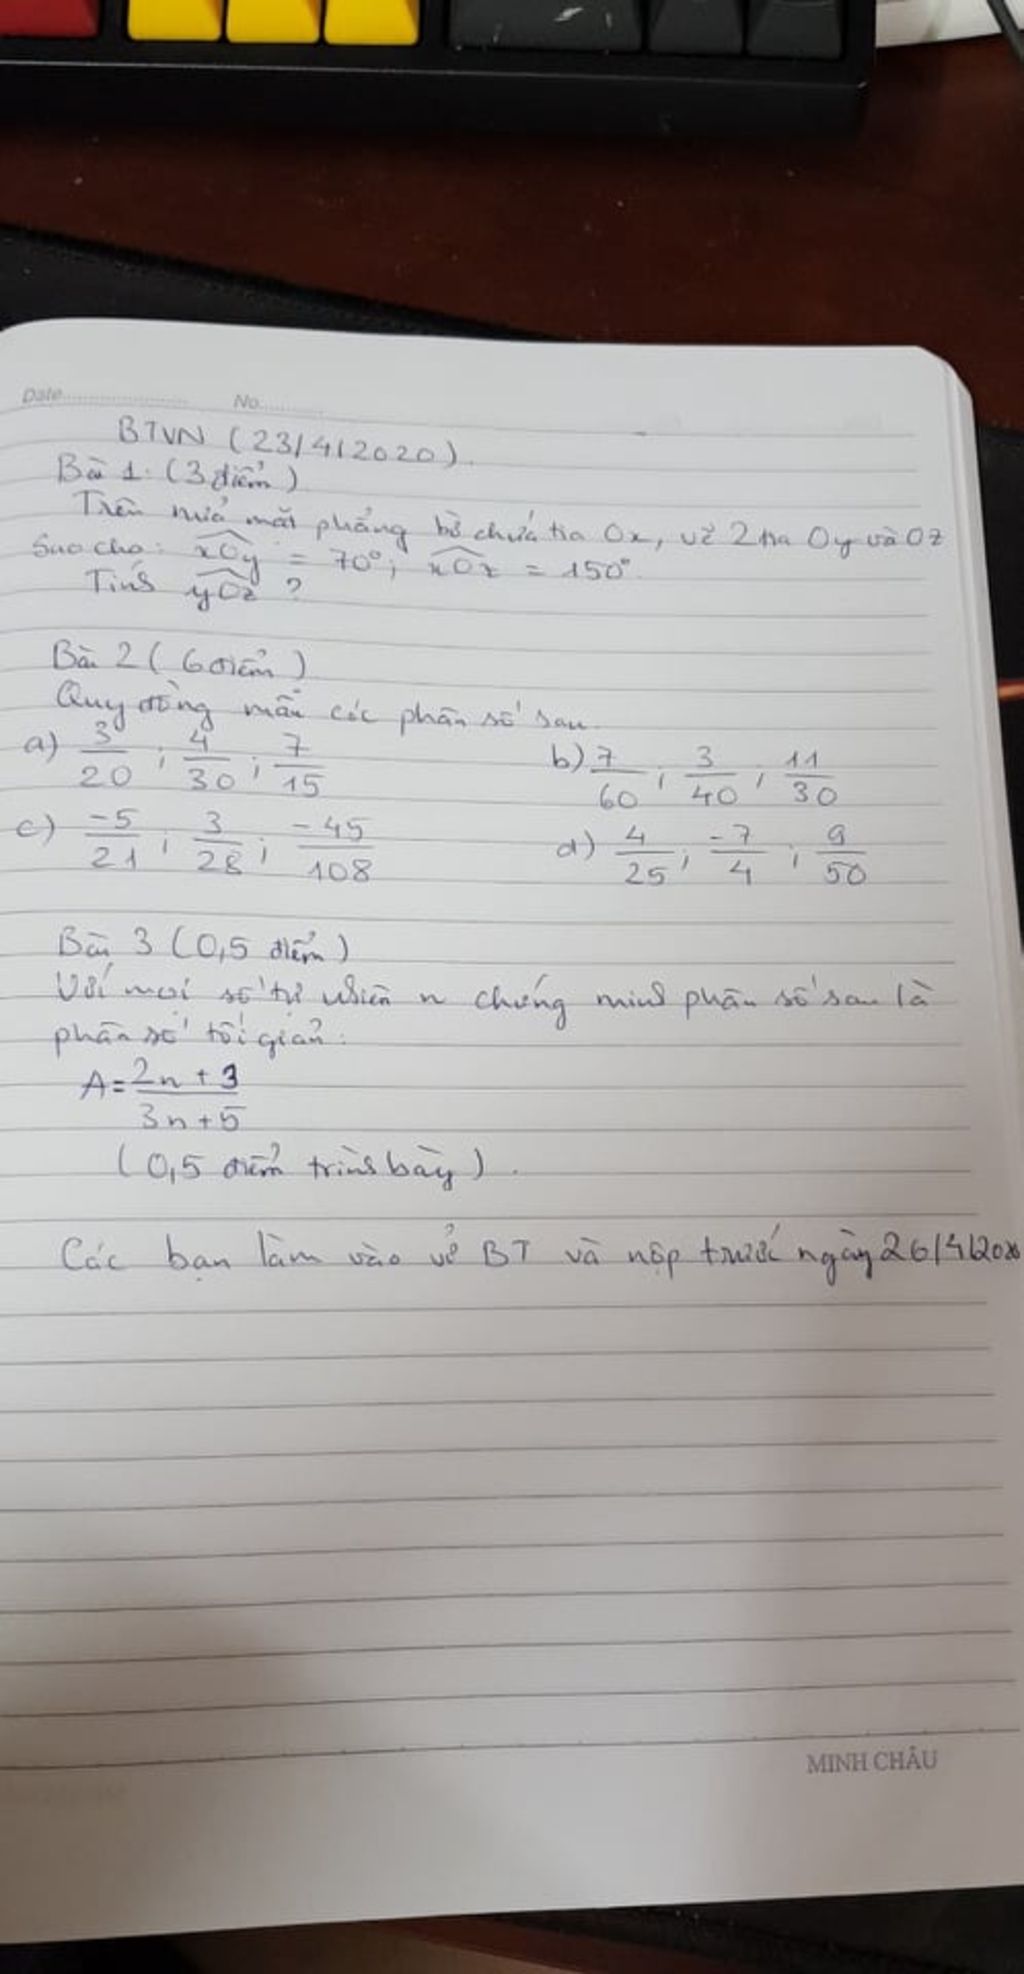 Date No.
BTVN (23/4/2020).
Bài 1: (3 điểm)
Trên nửa mặt phẳng bờ chứa tia Ox, vẽ 2 tia Oy và Oz
Sao cho: xOy = 70°; xOz = 150°.
Tính yOz ?
Bài 2 (6 điểm)
Quy đồng mẫu các phân số sau.
a) 3/20 ; 4/30 ; 7/15 b) 7/60 ; 3/40 ; 11/30
c) -5/21 ; 3/28 ; -45/108 d) 4/25 ; -7/4 ; 9/50
Bài 3 (0,5 điểm)
Với mọi số tự nhiên n chứng minh phân số sau là
phân số tối giản:
A = 2n + 3 / 3n + 5
(0,5 điểm trình bày).
Các bạn làm vào vở BT và nộp trước ngày 26/4/2020
MINH CHÂU